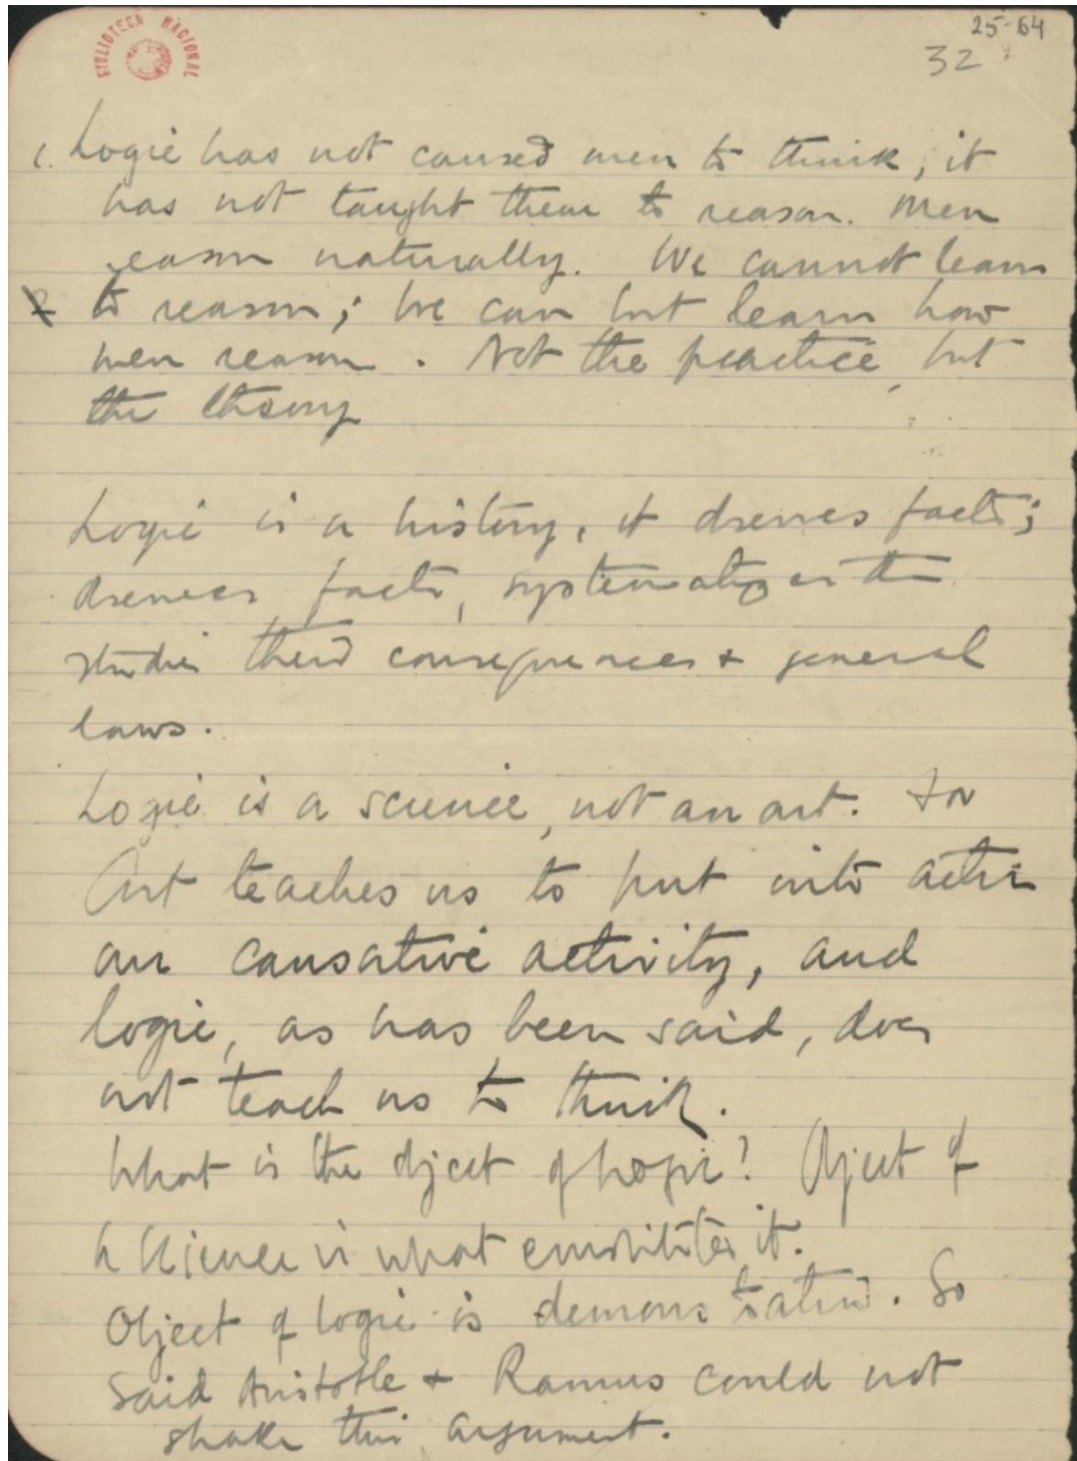 BIBLIOTECA NACIONAL
25-64
32
1. Logic has not caused men to think, it
has not taught them to reason. Men
reason naturally. We cannot learn
to reason; we can but learn how
men reason. Not the practice, but
the theory
Logic is a history, it observes facts;
observes facts, systematizes them
studies their consequences & general
laws.
Logic is a science, not an art. For
Art teaches us to put into action
an causative activity, and
logic, as has been said, does
not teach us to think.
What is the object of Logic? Object of
a science is what constitutes it.
Object of logic is demonstration. So
said Aristotle & Ramus could not
shake this argument.